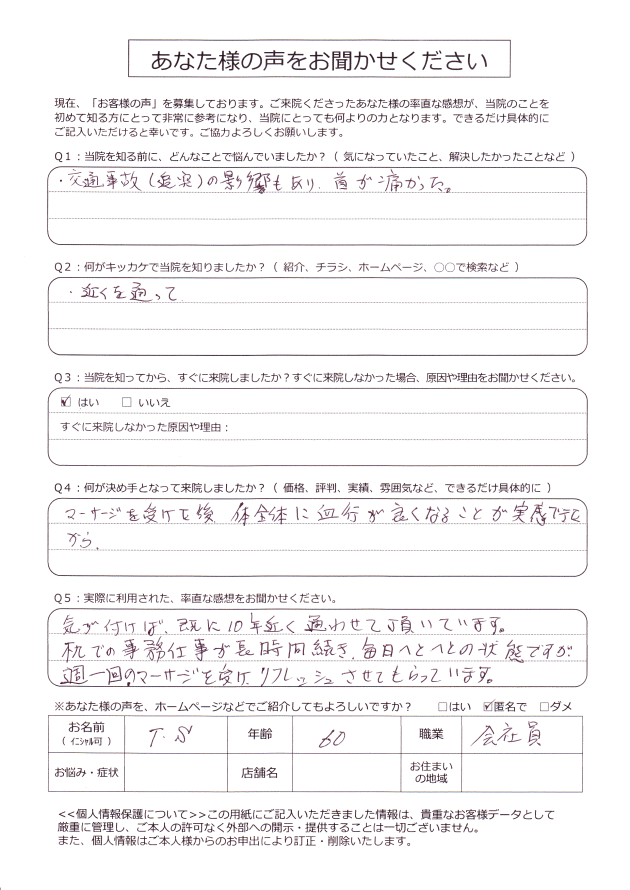 あなた様の声をお聞かせください
現在、「お客様の声」を募集しております。ご来院くださったあなた様の率直な感想が、当院のことを
初めて知る方にとって非常に参考になり、当院にとっても何よりの力となります。できるだけ具体的に
ご記入いただけると幸いです。ご協力よろしくお願いします。
Q1：当院を知る前に、どんなことで悩んでいましたか？（ 気になっていたこと、解決したかったことなど ）
・交通事故（追突）の影響もあり、首が痛かった。
Q2：何がキッカケで当院を知りましたか？（ 紹介、チラシ、ホームページ、○○で検索など ）
・近くを通って
Q3：当院を知ってから、すぐに来院しましたか？すぐに来院しなかった場合、原因や理由をお聞かせください。
☑ はい □ いいえ
すぐに来院しなかった原因や理由：
Q4：何が決め手となって来院しましたか？（ 価格、評判、実績、雰囲気など、できるだけ具体的に ）
マーサージを受けた後、体全体に血行が良くなることが実感できた
から。
Q5：実際に利用された、率直な感想をお聞かせください。
気が付けば、既に10年近く通わせて頂いています。
机での事務仕事が長時間続き、毎日ヘとヘとの状態ですが
週一回のマーサージを受け、リフレッシュさせてもらっています。
※あなた様の声を、ホームページなどでご紹介してもよろしいですか？ □はい ☑匿名で □ダメ
お名前（ｲﾆｼｬﾙ可） T.S 年齢 60 職業 会社員
お悩み・症状 店舗名 お住まいの地域
<<個人情報保護について>>この用紙にご記入いただきました情報は、貴重なお客様データとして
厳重に管理し、ご本人の許可なく外部への開示・提供することは一切ございません。
また、個人情報はご本人様からのお申出により訂正・削除いたします。